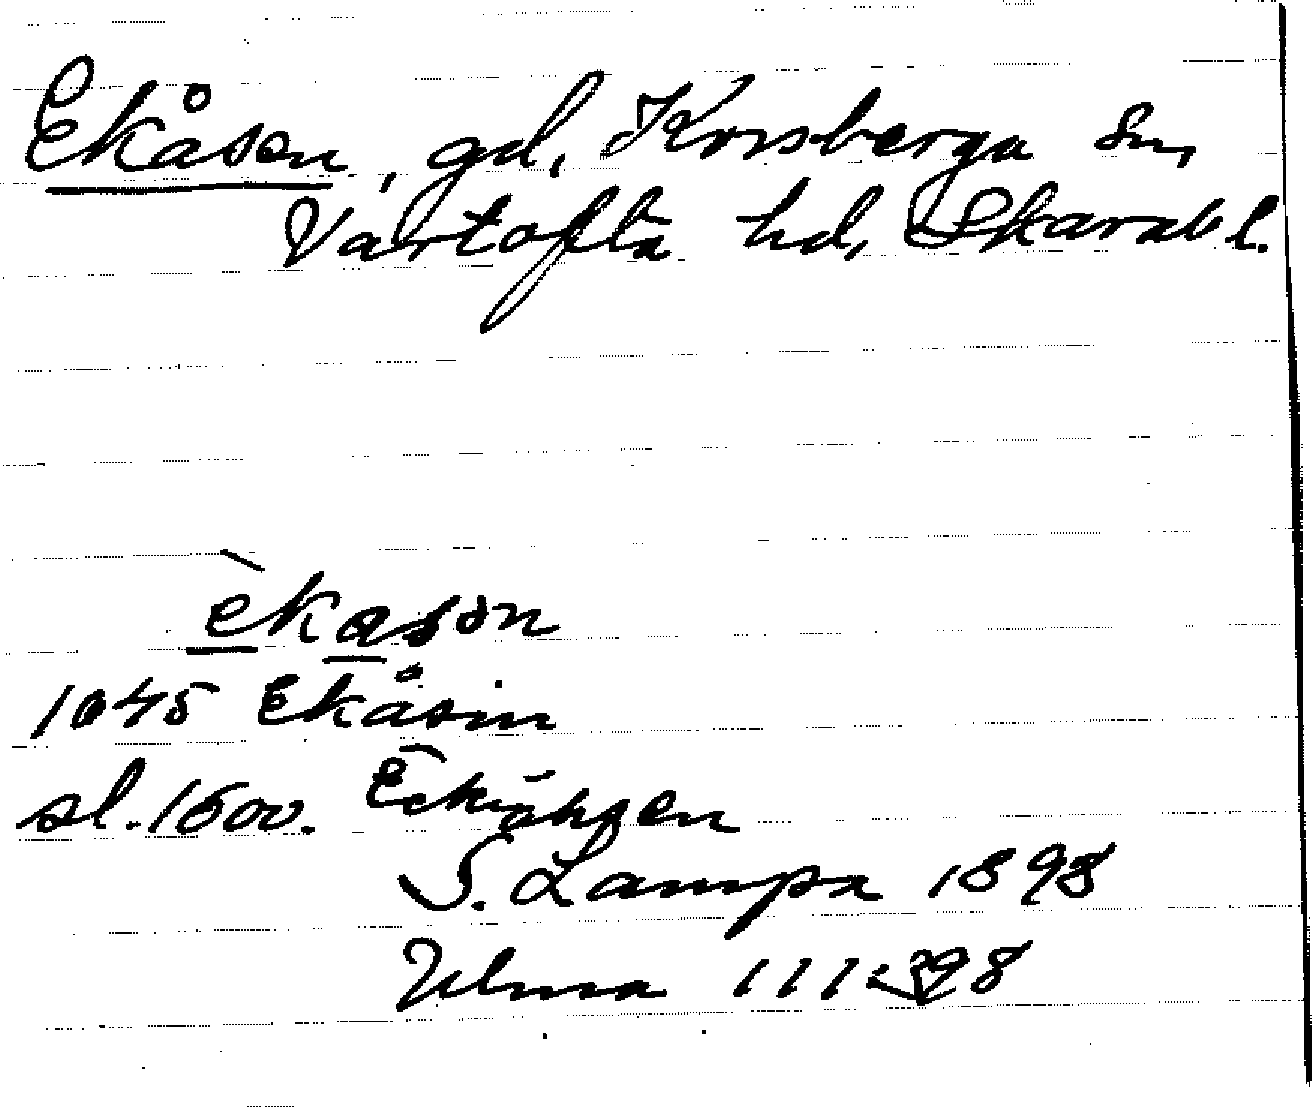 Ekåsen, gd, Korsberga sn,
Vartofta hd, Skarab l.
èkasən
1045 Ekåsin
sl. 1600. Eekåhsen
S. Lampa 1898
Ulma 111:398